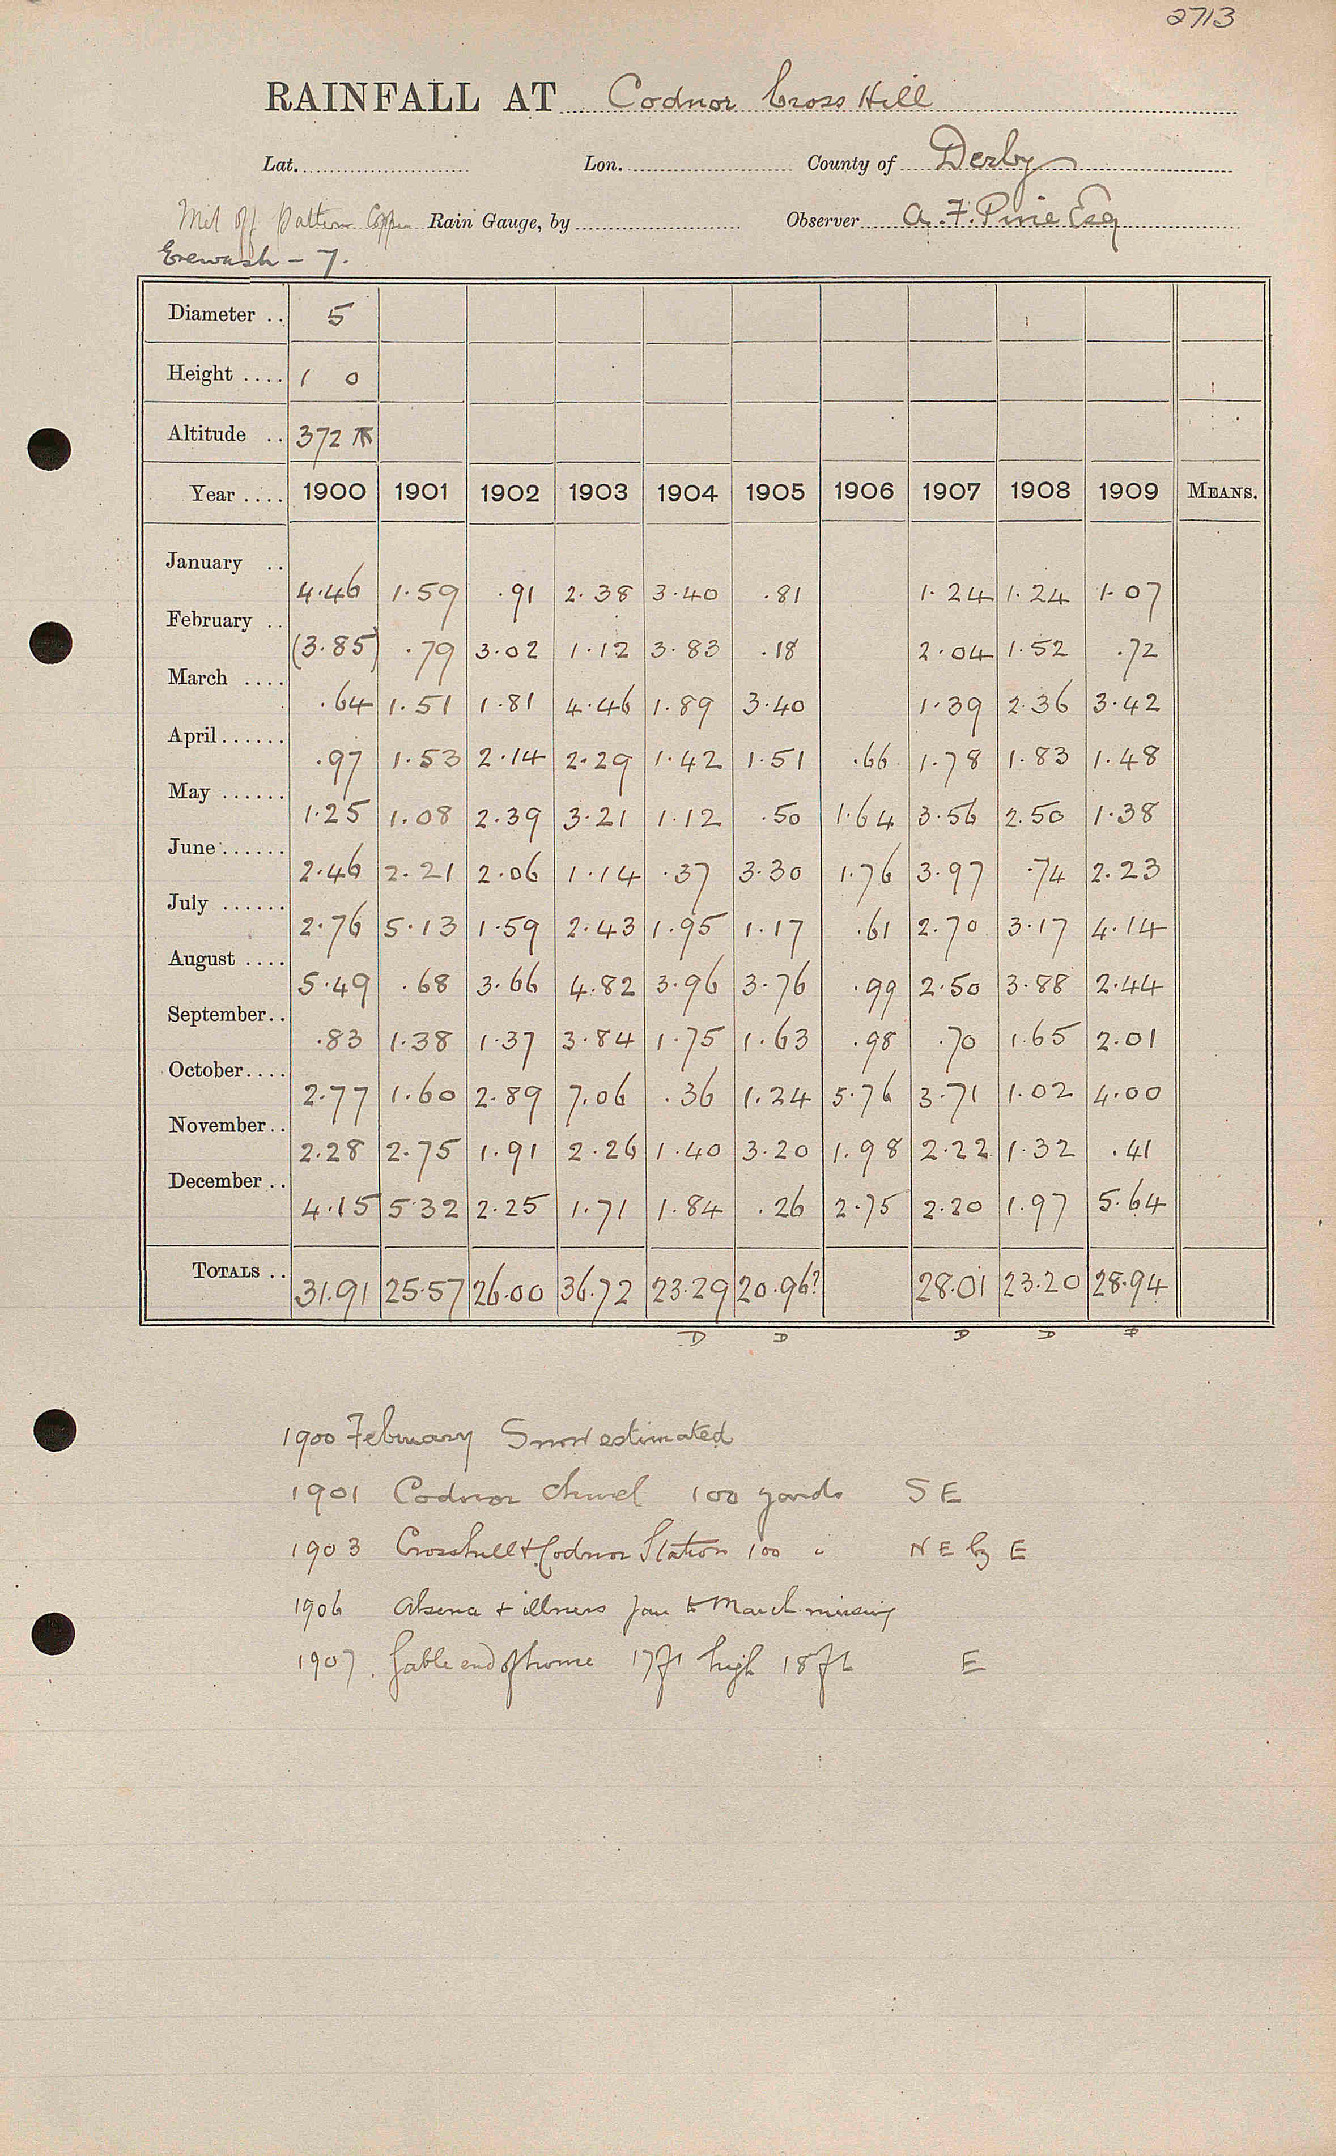 2713
RAINFALL AT Codnor Cross Hill
Lat. Lon. County of Derby
Met Off Pattern Copper Rain Gauge, by Observer A. F. Pirie Esq
Erewash - 7.
Diameter .. 5
Height .... 1 0
Altitude .. 372
Year .... 1900 1901 1902 1903 1904 1905 1906 1907 1908 1909 MEANS.
January .. 4.46 1.59 .91 2.38 3.40 .81 1.24 1.24 1.07
February .. (3.85) .79 3.02 1.12 3.83 .18 2.04 1.52 .72
March .... .64 1.51 1.81 4.46 1.89 3.40 1.39 2.36 3.42
April...... .97 1.53 2.14 2.29 1.42 1.51 .66 1.78 1.83 1.48
May ...... 1.25 1.08 2.39 3.21 1.12 .50 1.64 3.56 2.50 1.38
June ...... 2.46 2.21 2.06 1.14 .37 3.30 1.76 3.97 .74 2.23
July ...... 2.76 5.13 1.59 2.43 1.95 1.17 .61 2.70 3.17 4.14
August .... 5.49 .68 3.66 4.82 3.96 3.76 .99 2.50 3.88 2.44
September.. .83 1.38 1.37 3.84 1.75 1.63 .98 .70 1.65 2.01
October.... 2.77 1.60 2.89 7.06 .36 1.24 5.76 3.71 1.02 4.00
November.. 2.28 2.75 1.91 2.26 1.40 3.20 1.98 2.22 1.32 .41
December .. 4.15 5.32 2.25 1.71 1.84 .26 2.75 2.20 1.97 5.64
TOTALS .. 31.91 25.57 26.00 36.72 23.29 20.96? 28.01 23.20 28.94
D D D D D
1900 February Snow estimated
1901 Codnor Church 100 yards S E
1903 Crosshill & Codnor Station 100 " N E by E
1906 Absence & illness Jan to March missing
1907. Gable end of house 17ft high 18ft E